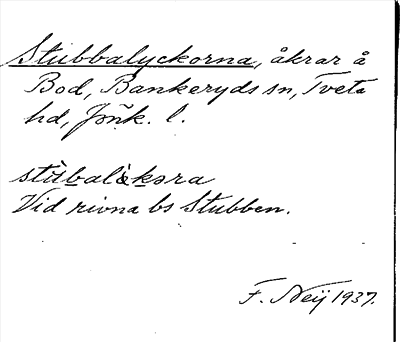 Stubbalyckorna, åkrar å
Bod, Bankeryds sn, Tveta
hd, Jönk. l.
stùbalὰkəra
Vid rivna bs Stubben.
F. Neij 1937.